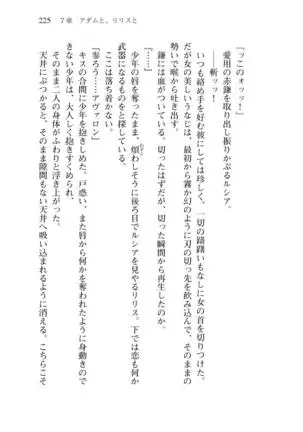 225　7章　アダムと、リリスと
「ッこのォッッ！」
愛用の赤鎌を取り出し振りかぶるルシア。
――斬ッ！
いつも絡め手を好む彼にしては珍しく、一切の躊躇いもなしに女の首を切りつけた。
だが女の美しいうなじは、最初から霧か幻のように刃の切っ先を飲み込んで、そのままの
勢いで喉から吐き出す。
鎌には血がついている。切ったはずだが、切った瞬間から再生したのか。
『……』
少年の唇を奪ったまま、煩わしそうに後ろ目でルシアを見やるリリス。下では恋も何か
武器になるものをと探している。
『ここは落ち着かない。
『参ろう……アヴァロン』
キスの合間に少年を抱きしめた。戸惑い、また唇から何かを奪われたように身動きので
きない少年は、大人しく抱きすくめられ、
そのまま二人の身体がふわりと浮き上がった。
天井にぶつかると、そのまま隙間もない天井へ吸い込まれるように消える。こちらこそ